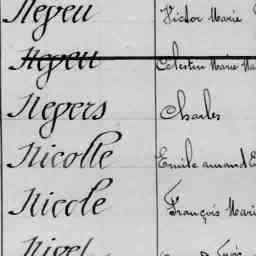 Negeu Victor Marie
Negeu Celestin Marie Ma
Negers Charles
Nicolle Emile amand E
Nicole François Mari
Nigel